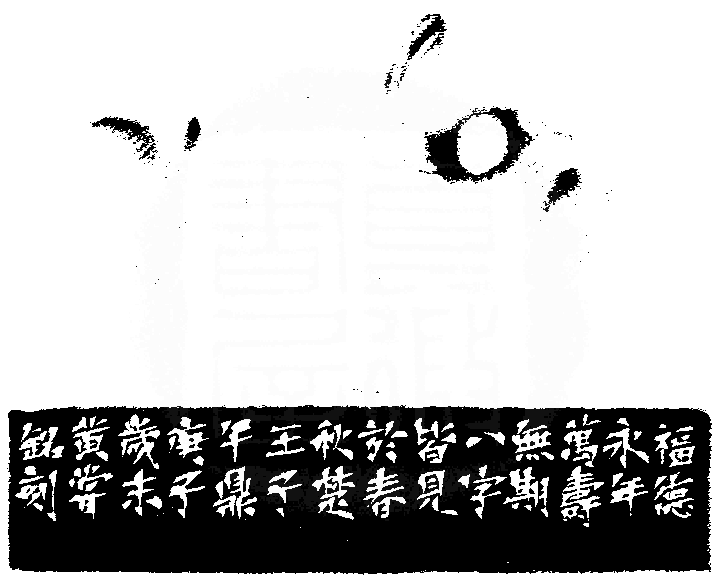 福德
永年
萬壽
無期
八字
皆見
於春
秋楚
王子
午鼎
庚子
歲末
黃嘗
銘刻